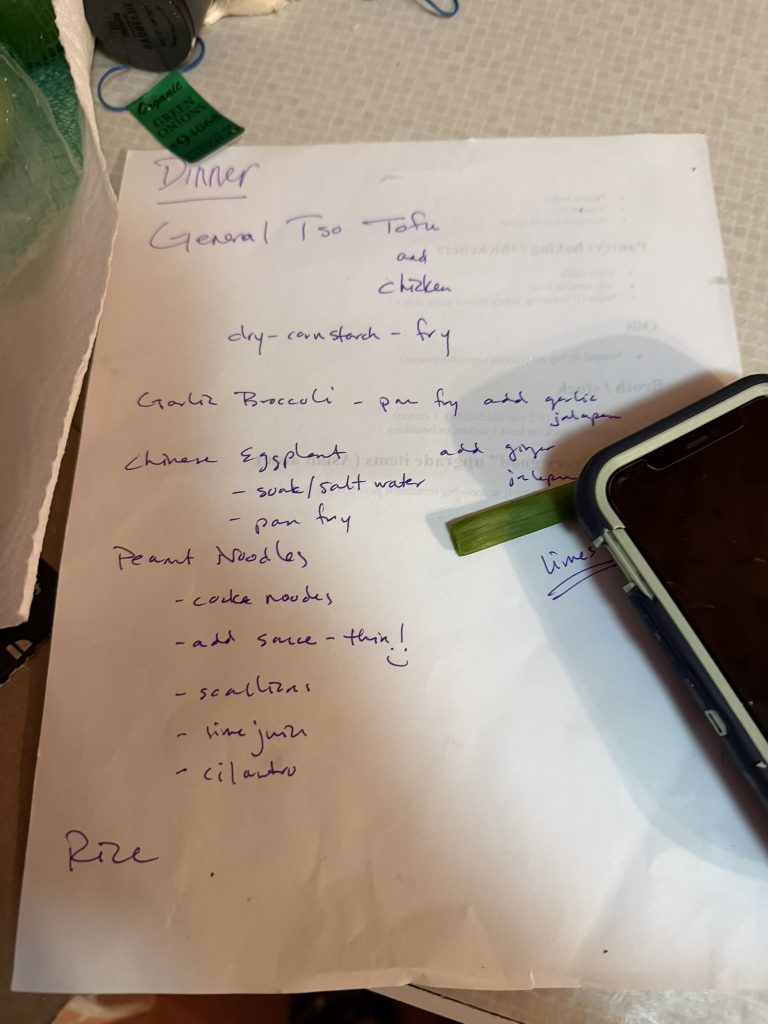 Organic
GREEN
ONIONS
Dinner
General Tso Tofu
and
chicken
dry-cornstarch - fry
Garlic Broccoli - pan fry add garlic
jalapen
Chinese Eggplant add ginger
- soak/salt water jalepen
- pan fry
Peanut Noodles
limes
- cooke noodes
- add sauce - thin!
- scallions
- lime juice
- cilantro
Rice
Pantry: baking / thickeners
Oils
Broth / stock